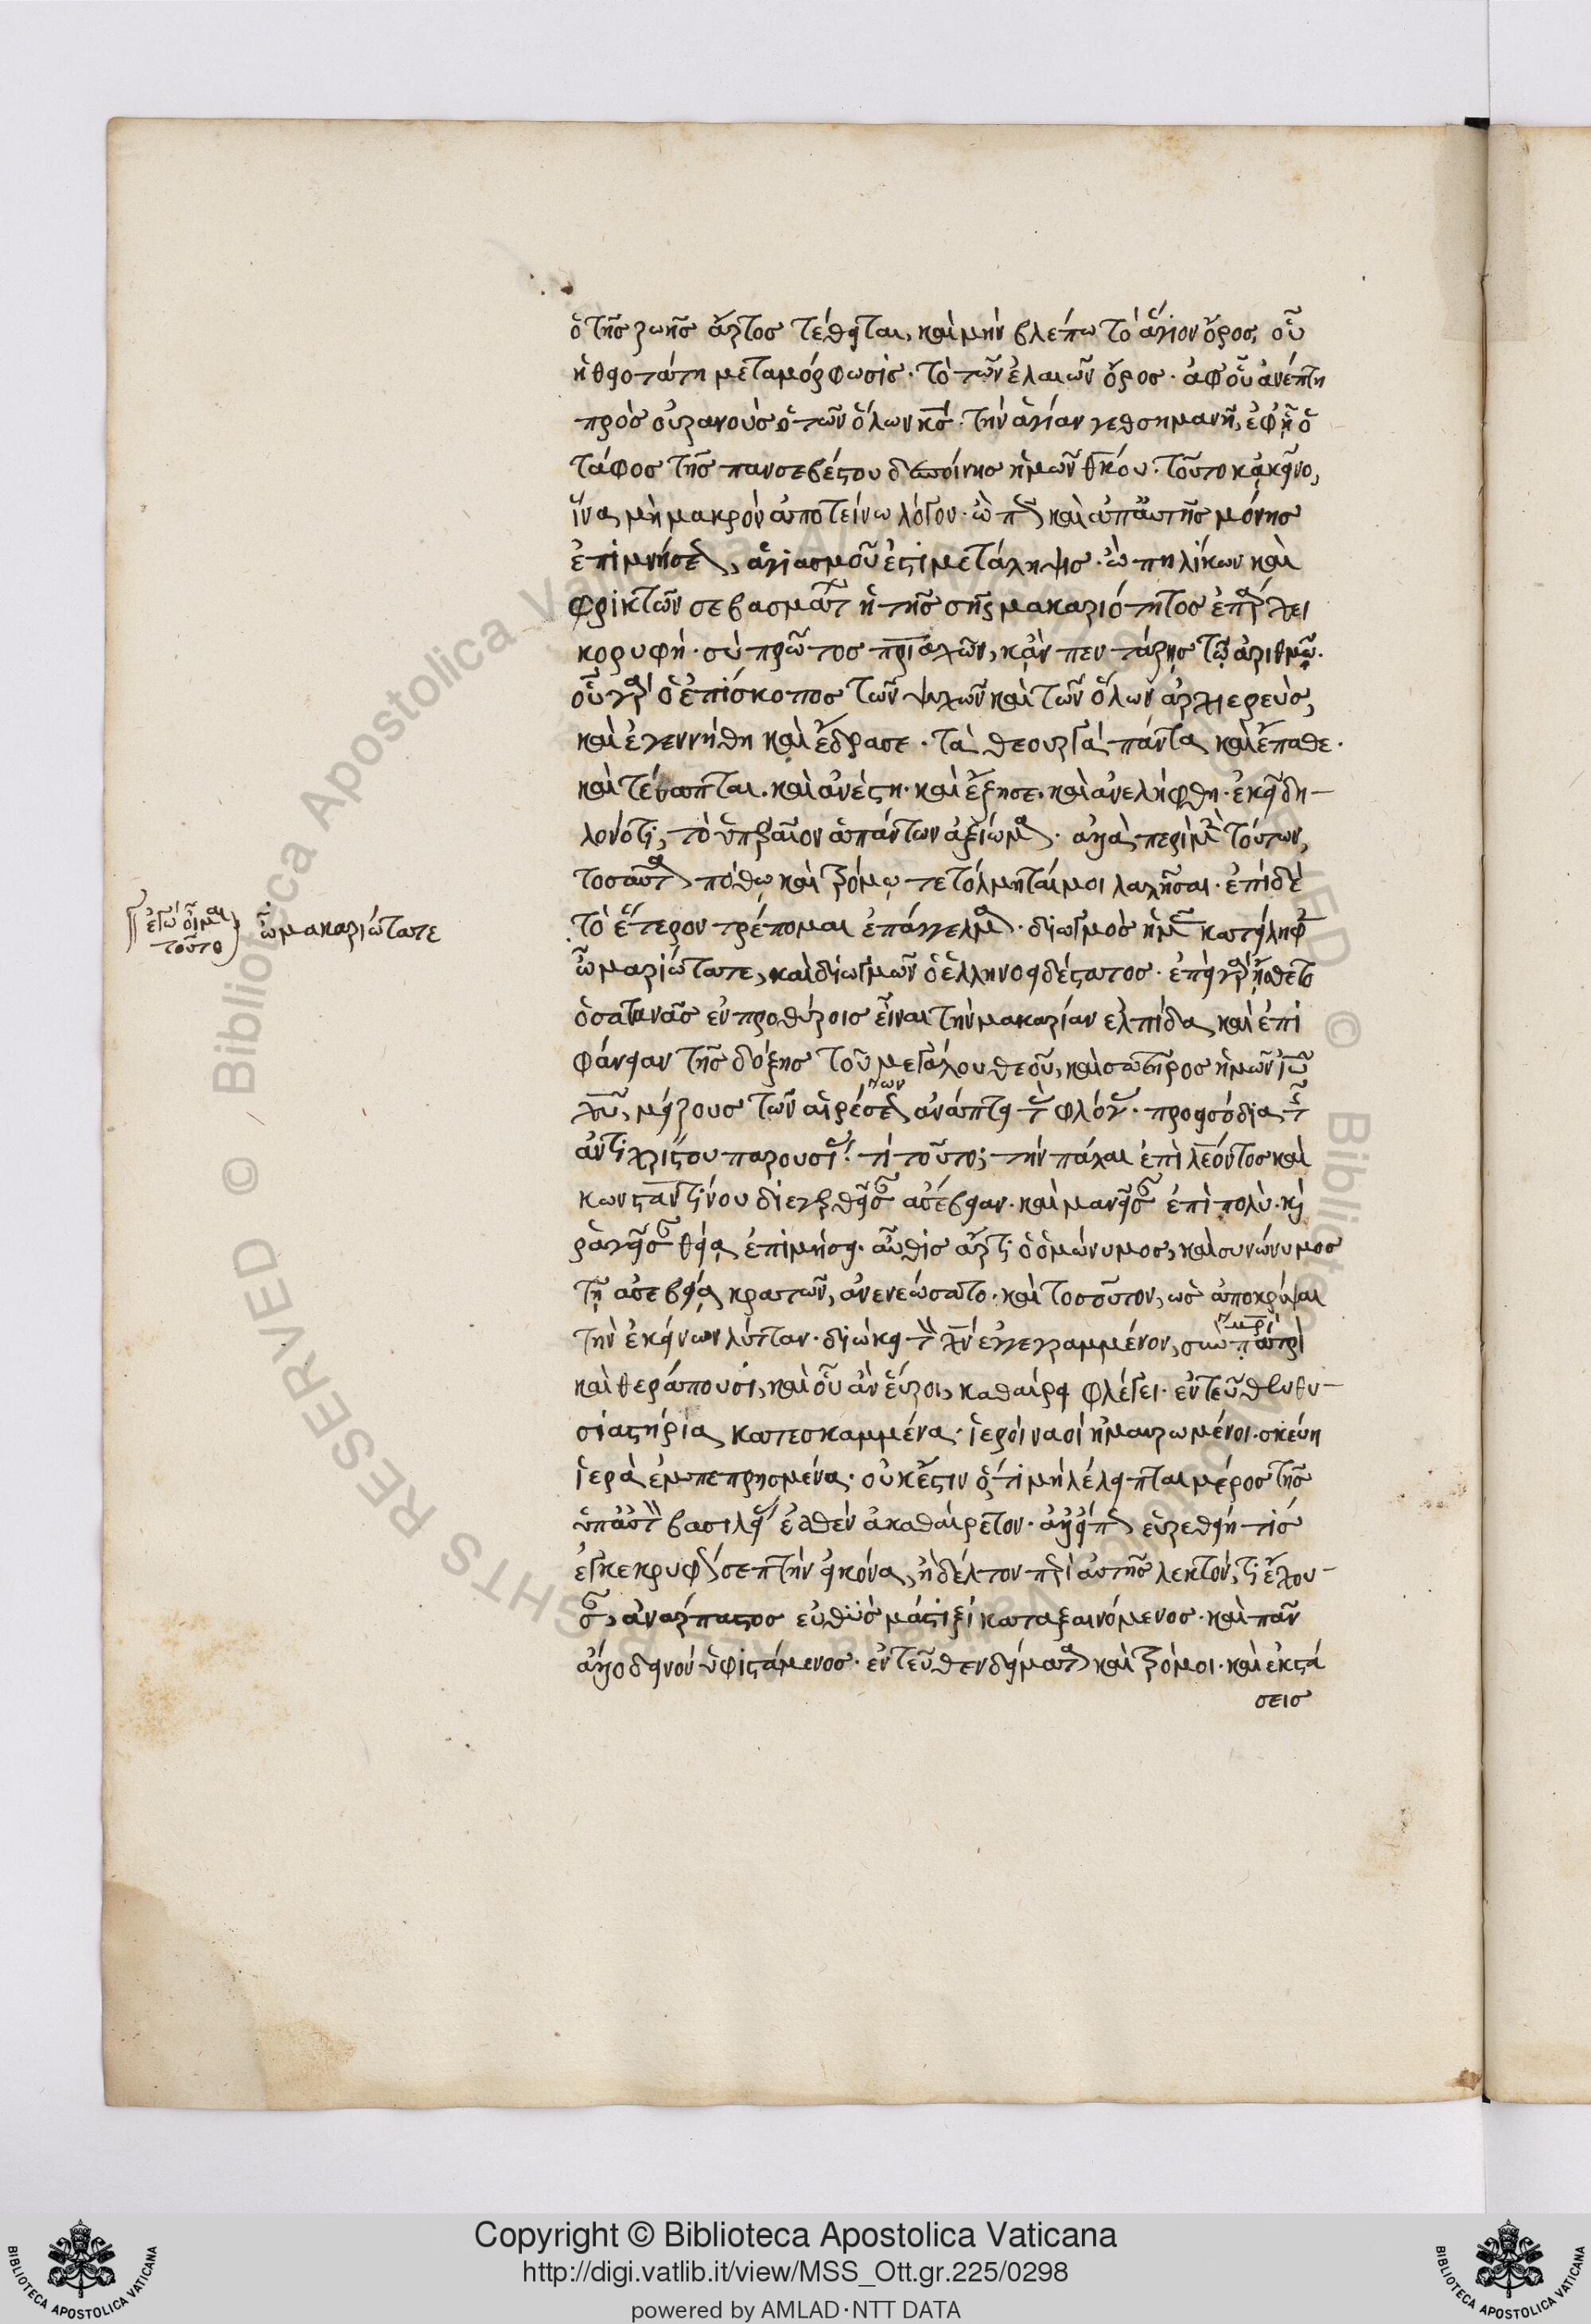 ὁ τῆς ζωῆς ἄρτος τέθειται, καὶ μὴν βλέπω τὸ ἅγιον ὄρος, οὗ
ἡ θειοτάτη μεταμόρφωσις. τὸ τῶν ἐλαιῶν ὄρος. ἀφ οὗ ἀνέπτη
πρὸς οὐρανοὺς ὁ τῶν ὅλων κς. τὴν ἁγίαν γεθσημανῆ, ἐφ ἧ ὁ
τάφος τῆς πανσεβέστου δεσποίνης ἡμῶν θκου. τοῦτο κἀκεῖνο,
ἵνα μὴ μακρὸν ἀποτείνω λόγον. καὶ ἀπ αὐτῆς μόνης
ἁγιασμοῦ ἐστι μετάληψις. ὢ πηλίκων καὶ
φρικτῶν σεβασμάτ ἡ τῆς σῆς μακαριότητος ἐπάρχει
κορυφή. σὺ πρῶτος πριαρχῶν, κἂν πενταζης τῶ ἀριθμῶ.
οὗ γὰρ ὁ ἐπίσκοπος τῶν ψυχῶν καὶ τῶν ὅλων ἀρχιερεὺς,
καὶ ἐγεννήθη καὶ ἔδρασε. τὰ θεουργὰ πάντα καὶ ἔπαθε.
καὶ τέθαπται. καὶ ἀνέστη. καὶ ἔζησε. καὶ ἀνελήφθη. ἐκεῖ δη-
λονότι, τὸ ὑπέρταιον ἁπάντων ἀξίωμα. ἀλλὰ περὶ μὲν τούτων,
τοσαῦτα πόθω καὶ τρόμω τετόλμηταί μοι λαλῆσαι. ἐπὶ δὲ
τὸ ἕτερον τρέπομαι ἐπάγγελμα. διωγμὸς ἡμᾶς κατείληφ
ἐγὼ οἶμαι
τοῦτο
ὦ μακαριώτατε
ὦ μαριώτατε, καὶ διωγμῶν ὁ ἐλλεινοειδέστατος. ἐπεὶ γὰρ ἤσθετο
ὁ σατανᾶς ἐν προθύροις εἶναι τὴν μακαρίαν ἐλπίδα καὶ ἐπι
φάνειαν τῆς δόξης τοῦ μεγάλου θεοῦ, καὶ σωτῆρος ἡμῶν ιυ
χυ, μείζους τῶν αἱρέσεων ἀνάπτει τὴν φλόγα. προεισόδια τῆς
ἀντιχρίστου παρουσίας. τί τοῦτο; τὴν πάλαι ἐπὶ λέοντος καὶ
κωνσταντίνου διεγερθεῖσαν ἀσέβειαν. καὶ μανεῖσαν ἐπὶ πολὺ. κ
ραγεῖσαν θεία ἐπιμήσει. αὖθις ἄρτι ὁ ὁμώνυμος, καὶ συνώνυμος
τῆ ἀσεβεία κρατῶν, ἀνενεώσατο. καὶ τοσοῦτον, ὡς ἀποκρύψαι
τὴν ἐκείνων λύτταν. διώκει τὸν χν ἐγγεγραμμένον, σὺν
καὶ θεράπουσι, καὶ οὗ ἂν εὕροι, καθαίρει φλέγει. ἐντεῦθεν θυ-
σιαστήρια κατεσκαμμένα. ἱεροὶ ναοὶ ἠμαυρωμένοι. σκεύη
ἱερὰ ἐμπεπρησμένα. οὐκ ἔστιν ὅ,τι μὴ λέλειπται μέρος τῆς
ὑπ αὐτὸν βασιλείας ἐαθὲν ἀκαθαίρετον. ἀλλ εἴπερ εὑρεθείη τις
ἐγκεκρυφὼς σεπτὴν εἰκόνα, ἢ δέλτον περὶ αὐτῆς λεκτόν, τι ἔχου-
σαν, ἀνάρπαστος εὐθὺς μάστιξι καταξαινόμενος. καὶ πᾶν
ἀλγοδεινὸν ὑφιστάμενος. ἐντεῦθεν δείματα καὶ τρόμοι. καὶ ἐκστά
σεις
Copyright © Biblioteca Apostolica Vaticana
http://digi.vatlib.it/view/MSS_Ott.gr.225/0298
powered by AMLAD·NTT DATA